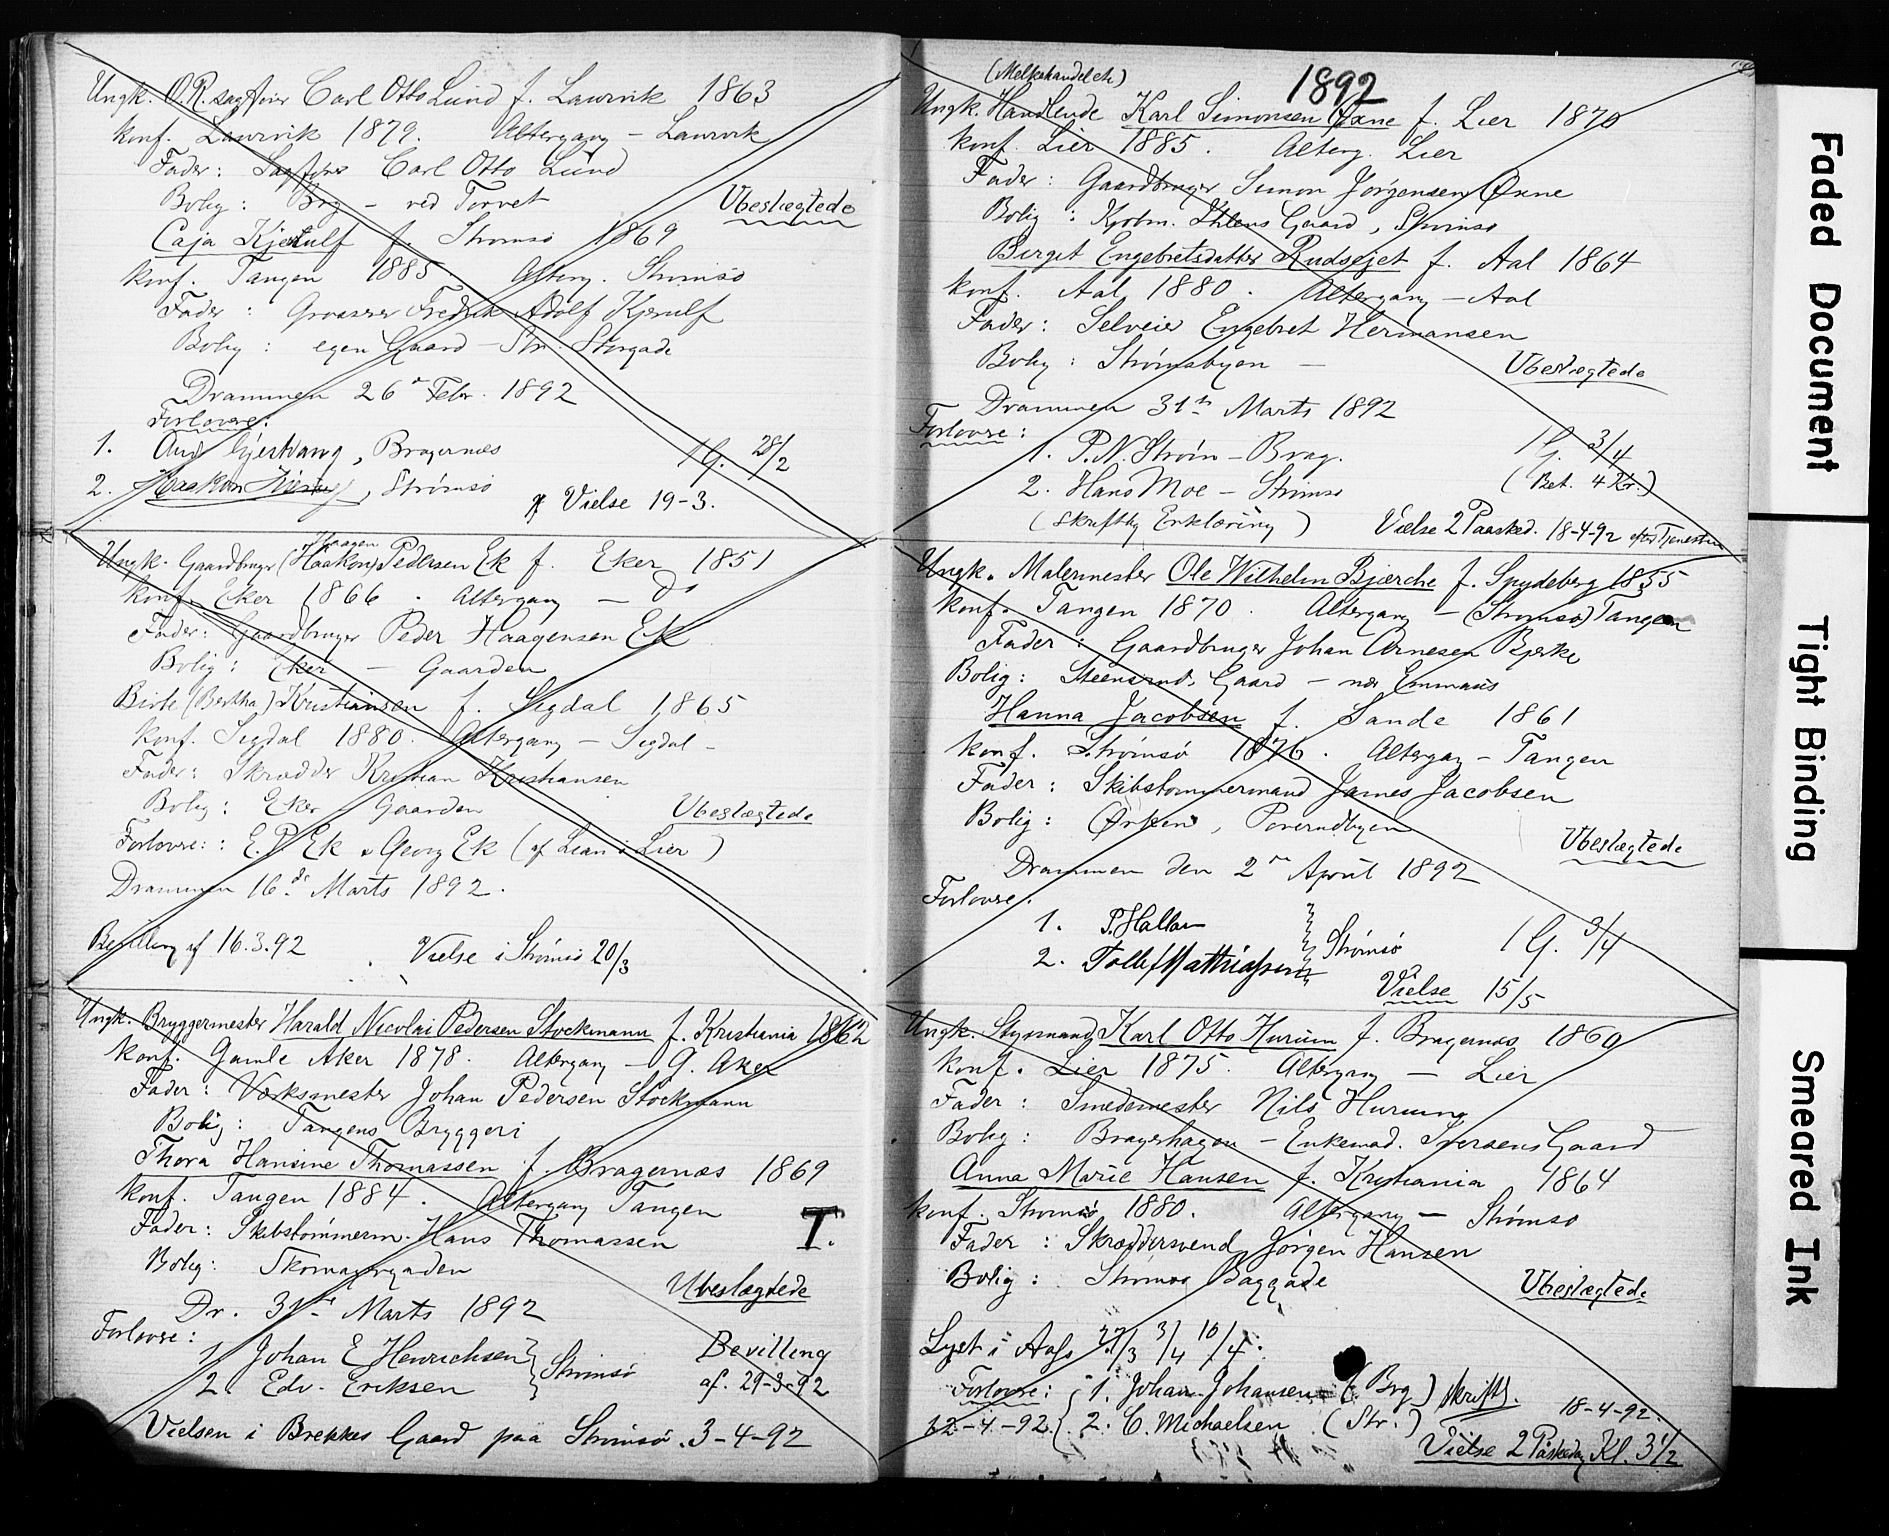 Ungk. O.R. sagfører Carl Otto Lund f. Laurvik 1863
konf. Laurvik 1879. Altergang – Laurvik
Fader: Sagfører Carl Otto Lund
Bolig: Brg – ved Torvet
Ubeslægtede
Caja Kjerulf f. Strømsø 1869
konf. Tangen 1885. Alterg. Strømsø
Fader: Grosserer Fredrik Adolf Kjerulf
Bolig: egen Gaard – Str. Storgade
Drammen 26 Febr. 1892
Forlovere:
1. And. , Bragernæs
1 G. 28/2
2. Haakon , Strømsø
Vielse 19-3.
Ungk. Gaardbruger (Haakon) Haagen Pedersen Ek f. Eker 1851
konf. Eker 1866. Altergang – Do
Fader: Gaardbruger Peder Haagensen Ek
Bolig: Eker – Gaarden
Birte (Bertha) Kristiansen f. Sigdal 1865
konf. Sigdal 1880. Altergang – Sigdal –
Fader: Skrædder Kristian Kristiansen
Bolig: Eker Gaarden
Ubeslægtede
Forlovere: E. P. Ek & Georg Ek (af Lian i Lier)
Drammen 16de Marts 1892.
Bevilling af 16.3.92 Vielse i Strømsø 20/3
Ungk. Bryggermester Harald Nicolai Pedersen Stockmann f. Kristiania 1862
konf. Gamle Aker 1878. Altergang – G. Aker
Fader: Værksmester Johan Pedersen Stockmann
Bolig: Tangens Bryggeri
Thora Hansine Thomassen f. Bragernæs 1869
konf. Tangen 1884. Altergang Tangen
Fader: Skibstømmerm. Hans Thomassen
T.
Bolig: Skomagergaden
Ubeslægtede
Dr. 31te Marts 1892
Forlovere:
1. Johan E Henrichsen
2. Edv. Eriksen
Strømsø
Bevilling
af. 29-3-92
Vielsen i Brekkes Gaard paa Strømsø. 3-4-92
1892
(Melkehandel etc.)
Ungk. Handlende Karl Simonsen Øxne f. Lier 1870
konf. Lier 1885. Alterg. Lier
Fader: Gaardbruger Simon Jørgensen Øxne
Bolig: Kjøbm. Ihlens Gaard, Strømsø
Birgit Engebretsdatter Rudsejet f. Aal 1864
konf. Aal 1880. Altergang – Aal
Fader: Selveier Engebret Hermansen
Bolig: Strømsbyen –
Ubeslægtede
Drammen 31te Marts 1892
Forlovere:
1. P.N. Strøm – Brag.
1 G. 3/4
2. Hans Moe – Strømsø
(Bet. 4 Kr.)
(Skriftlig Erklæring)
Vielse 2 Paasked. 18-4-92 efter Tjenesten
Ungk. Malermester Ole Wilhelm Bjærche f. Spydeberg 1855
konf. Tangen 1870. Altergang – (Strømsø) Tangen
Fader: Gaardbruger Johan Arnesen Bjerke
Bolig: Steensruds Gaard – nær Emmaus
Hanna Jacobsen f. Sande 1861
konf. Strømsø 1876. Altergang – Tangen
Fader: Skibstømmermand James Jacobsen
Bolig: Ørken, Poverudbyen
Ubeslægtede
Drammen den 2den April 1892
Forlovere:
1. P. Hallan
2. Tollef Mathiassen
Strømsø
1 G. 3/4
Vielse 15/5
Ungk. Styrmand Karl Otto Hurum f. Bragernæs 1860
konf. Lier 1875. Altergang – Lier
Fader: Smedemester Nils Hurum
Bolig: Brageshagen – Enkemad. Iversens Gaard
Anna Marie Hansen f. Kristiania 1864
konf. Strømsø 1880. Altergang – Strømsø
Fader: Skræddersvend Jørgen Hansen
Bolig: Strømsø Baggade
Ubeslægtede
Lyst i Aass 27/3 3/4 10/4.
Forlovere: 1. Johan Johansen (Brg) skriftl.
12-4-92. 2. C. Michaelsen (Str.)
18-4-92.
Vielse 2 Påskedag Kl. 3 1/2
Faded Document
Tight Binding
Smeared Ink